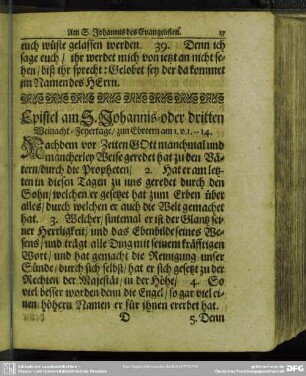 Am S. Johannis des Evangelisten.
euch wüste gelassen werden. 39. Denn ich
sage euch/ ihr werdet mich von jetzt an nicht se-
hen/ biß ihr sprecht: Gelobet sey der da kommet
im Namen des HErrn.
Epistel am S. Johannis-oder dritten
Weinacht-Feyertage/ zun Ebreern am 1. v. 1. – 14.
Nachdem vor Zeiten GOtt manchmal und
mancherley Weise geredet hat zu den Vä-
tern/ durch die Propheten/ 2. Hat er am letz-
ten in diesen Tagen zu uns geredet durch den
Sohn/ welchen er gesetzet hat zum Erben über
alles/ durch welchen er auch die Welt gemachet
hat. 3. Welcher/ sintemal er ist der Glantz sei-
ner Herrligkeit/ und das Ebenbild seines We-
sens/ und trägt alle Ding mit seinem kräfftigen
Wort/ und hat gemacht die Reinigung unser
Sünde/ durch sich selbst/ hat er sich gesetzt zu der
Rechten der Majestät/ in der Höhe/ 4. So
viel besser worden denn die Engel/ so gar viel ei-
nen höhern Namen er für ihnen ererbet hat.
D 5. Denn